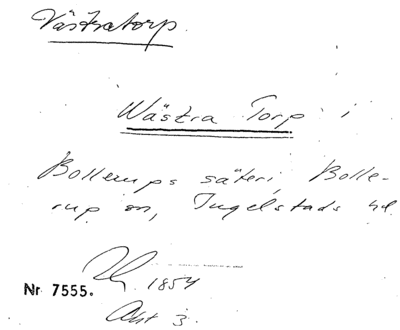 Västratorp.
Wästra Torp i
Bollerups säteri, Bolle-
rup sn, Ingelstads hd.
1854
Nr 7555.
Akt 3.